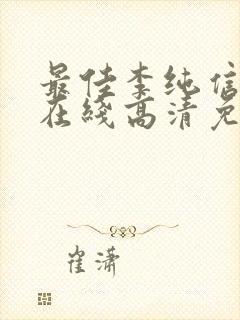 最佳李纯信
在线高清免
崔潇